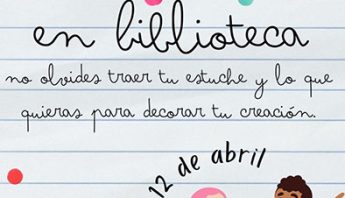 en biblioteca
no olvides traer tu estuche y lo que
quieras para decorar tu creación.
12 de abril